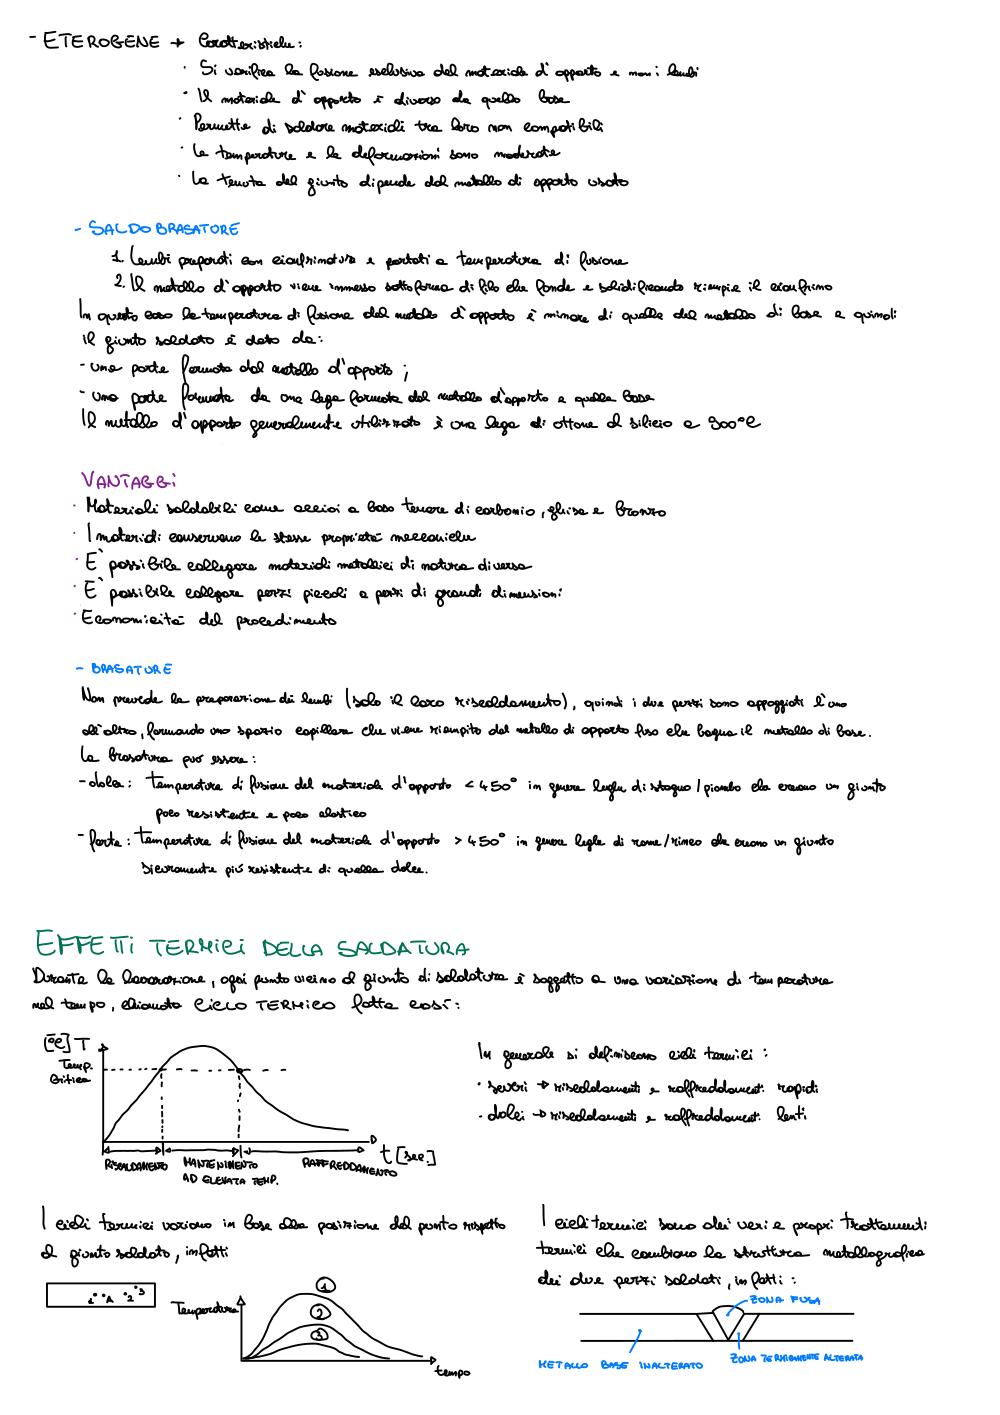 - ETEROGENE → Caratteristiche:
· Si verifica la fusione esclusiva del materiale d'apporto e non i lembi
· Il materiale d'apporto è diverso da quello base
· Permette di saldare materiali tra loro non compatibili
· Le temperature e le deformazioni sono moderate
· La tenuta del giunto dipende dal metallo di apporto usato
- SALDOBRASATURE
1. Lembi preparati con cianfrinatura e portati a temperatura di fusione
2. Il metallo d'apporto viene immesso sottoforma di filo che fonde e solidificando riempie il cianfrino
In questo caso la temperatura di fusione del metallo d'apporto è minore di quella del metallo di base e quindi
il giunto saldato è dato da:
- una parte formata dal metallo d'apporto;
- una parte formata da una lega formata dal metallo d'apporto e quello base
Il metallo d'apporto generalmente utilizzato è una lega di ottone al silicio a 900°C
VANTAGGi
· Materiali saldabili come acciai a baso tenore di carbonio, ghisa e bronzo
· I materiali conservano le stesse proprietà meccaniche
· E' possibile collegare materiali metallici di natura diversa
· E' possibile collegare pezzi piccoli a pezzi di grandi dimensioni
· Economicità del procedimento
- BRASATURE
Non prevede la preparazione dei lembi (solo il loro riscaldamento), quindi i due pezzi sono appoggiati l'uno
all'altro, formando uno spazio capillare che viene riempito dal metallo di apporto fuso che bagna il metallo di base.
La brasatura può essere:
- dolce: temperatura di fusione del materiale d'apporto < 450° in genere leghe di stagno/piombo che creano un giunto
poco resistente e poco elastico
- forte: temperatura di fusione del materiale d'apporto > 450° in genere leghe di rame/zinco che creano un giunto
sicuramente più resistente di quella dolce.
EFFETTi TERMICI DELLA SALDATURA
Durante la lavorazione, ogni punto vicino al giunto di saldatura è soggetto a una variazione di temperatura
nel tempo, chiamata CICLO TERMICO fatta così:
[°C] T
Temp.
Critica
t [sec.]
RISCALDAMENTO
MANTENIMENTO
AD ELEVATA TEMP.
RAFFREDDAMENTO
In generale si definiscono cicli termici:
· severi → riscaldamenti e raffreddamenti rapidi
· dolci → riscaldamenti e raffreddamenti lenti
I cicli termici variano in base alla posizione del punto rispetto
al giunto saldato, infatti
Temperatura
1
2
3
tempo
I cicli termici sono dei veri e propri trattamenti
termici che cambiano la struttura metallografica
dei due pezzi saldati, infatti:
ZONA FUSA
METALLO BASE INALTERATO
ZONA TERMICAMENTE ALTERATA